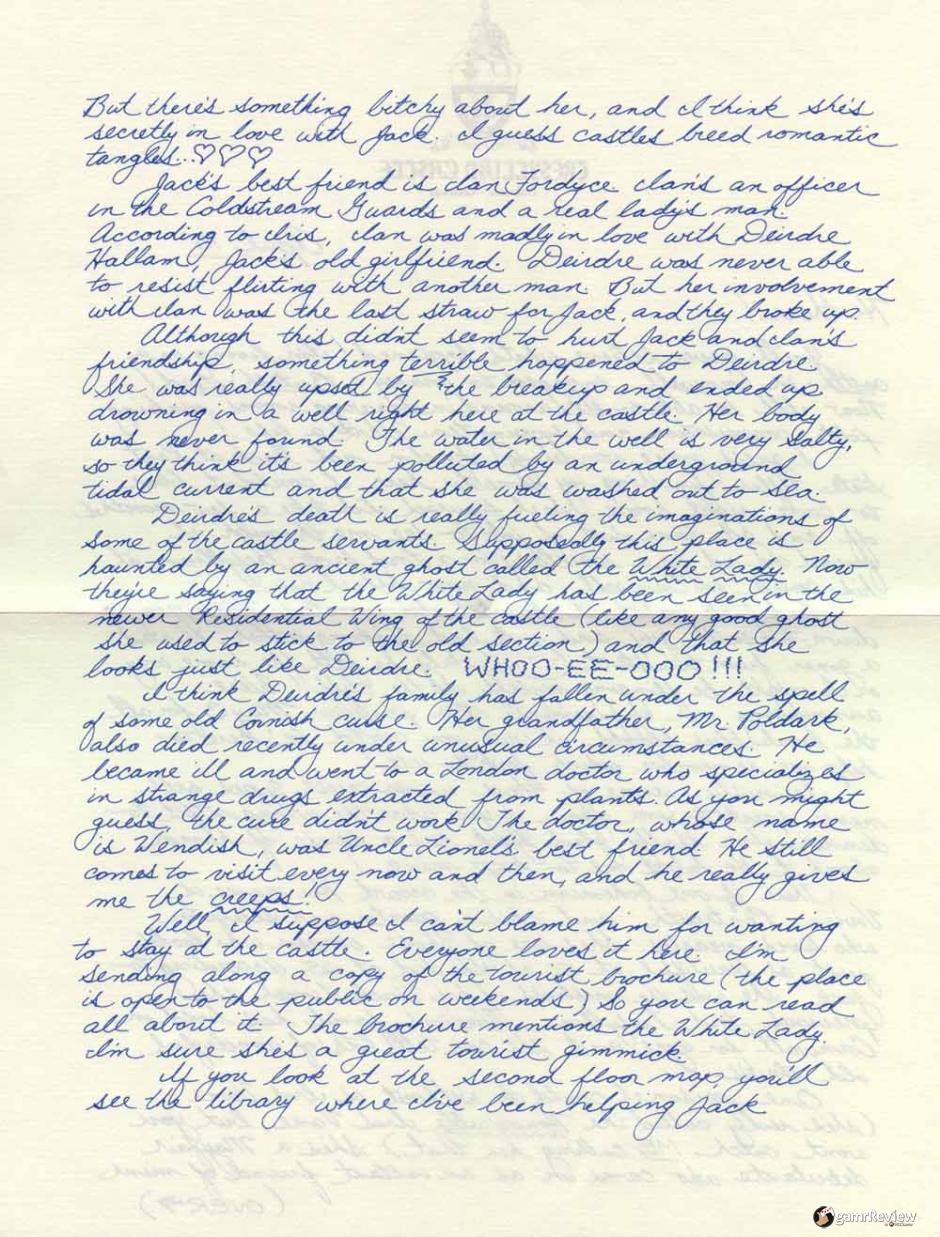 But there's something bitchy about her, and I think she's
secretly in love with Jack. I guess castles breed romantic
tangles...♡♡♡
Jack's best friend is Ian Fordyce. Ian's an officer
in the Coldstream Guards and a real lady's man.
According to Iris, Ian was madly in love with Deirdre
Hallam, Jack's old girlfriend. Deirdre was never able
to resist flirting with another man. But her involvement
with Ian was the last straw for Jack, and they broke up.
Although this didn't seem to hurt Jack and Ian's
friendship, something terrible happened to Deirdre.
She was really upset by the breakup and ended up
drowning in a well right here at the castle. Her body
was never found. The water in the well is very salty,
so they think it's been polluted by an underground
tidal current and that she was washed out to sea.
Deirdre's death is really fueling the imaginations of
some of the castle servants. Supposedly this place is
haunted by an ancient ghost called the White Lady. Now
they're saying that the White Lady has been seen in the
newer Residential Wing of the castle (like any good ghost
she used to stick to the old section) and that she
looks just like Deirdre. WHOO-EE-OOO!!!
I think Deirdre's family has fallen under the spell
of some old Cornish curse. Her grandfather, Mr. Poldark,
also died recently under unusual circumstances. He
became ill and went to a London doctor who specializes
in strange drugs extracted from plants. As you might
guess, the cure didn't work. The doctor, whose name
is Wendish, was Uncle Lionel's best friend. He still
comes to visit every now and then, and he really gives
me the creeps!
Well, I suppose I can't blame him for wanting
to stay at the castle. Everyone loves it here. I'm
sending along a copy of the tourist brochure (the place
is open to the public on weekends) so you can read
all about it. The brochure mentions the White Lady.
I'm sure she's a great tourist gimmick.
If you look at the second floor map, you'll
see the library where I've been helping Jack
gamrReview